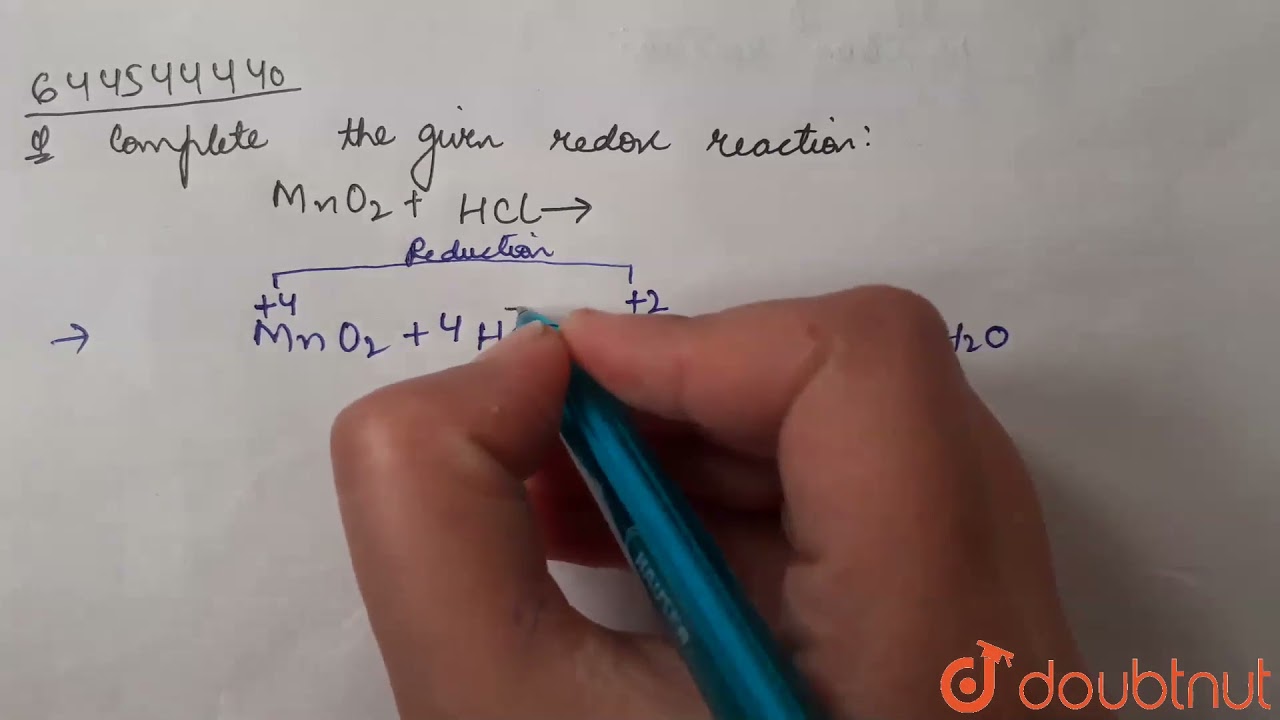 644544440
Q Complete the given redox reaction:
MnO2 + HCl →
Reduction
+4 +2
→ MnO2 + 4 H H2O
doubtnut